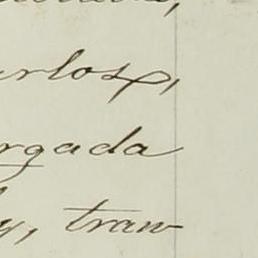 arlos,
rgada
y, traw